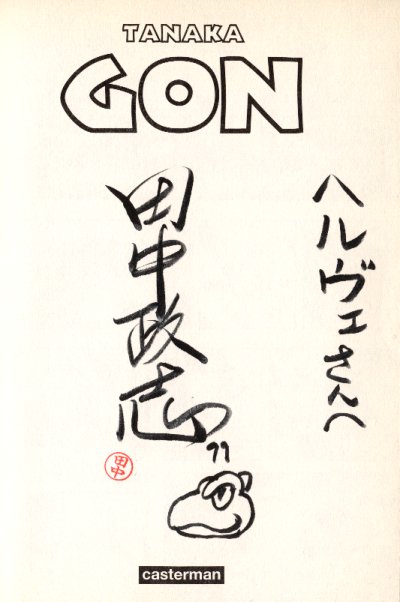 TANAKA
GON
ヘルヴェさんへ
田中政志
'99
田中
casterman